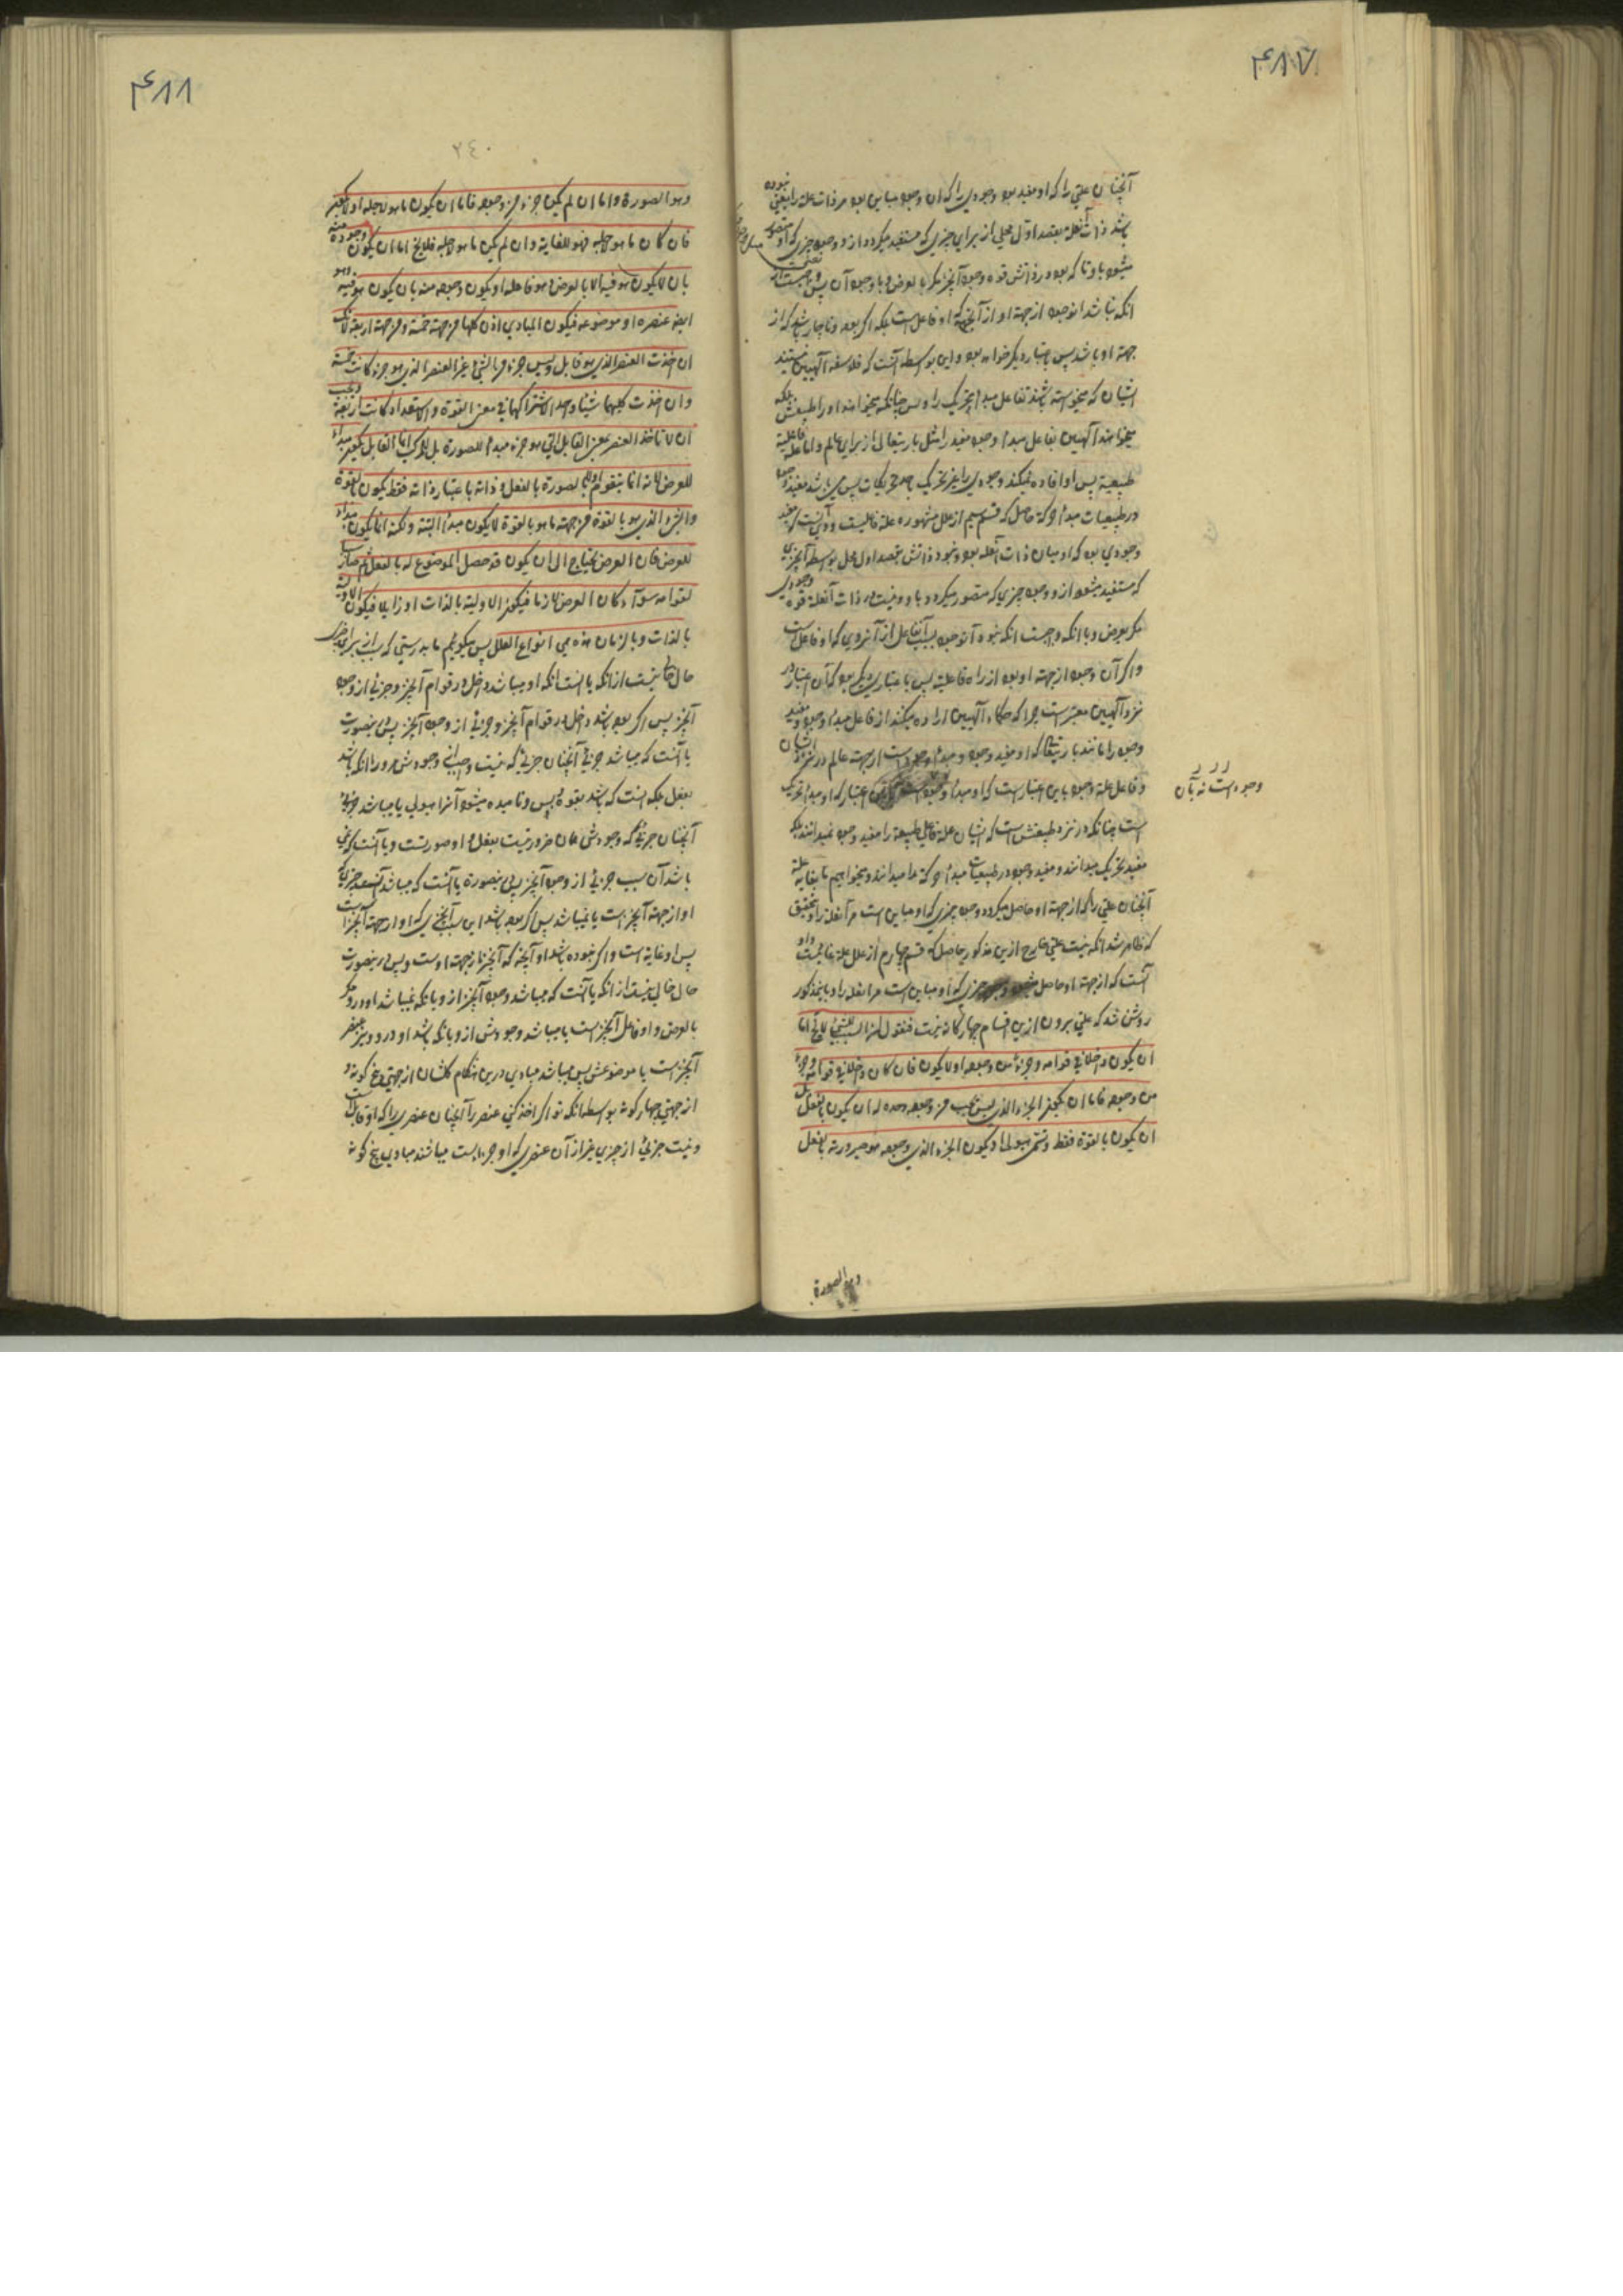 ۴۸۷
آنچنان علتی را که او مفید بود وجودی را که ان وجود مباین بود مر ذات علة را یعنی نبوده
باشد ذات آنعلة بقصد اول محل از برای چیزی که مستفید میگردد ازو وجود چیزی که او متصور
میشود باو تا که بوده در ذاتش قوه وجود آنچیز مگر بالعرض و با وجود آن پس واجبست از
انکه نباشد انوجود از جهة او از آنجهة که او فاعل است بلکه اگر بوده
جهة او باشد پس باعتبار دیگر خواهد بود و این بواسطه آنست که فلاسفه آلهیین نیستند
ایشان که میخواسته باشند بفاعل مبدا تحریک را و بس چنانکه میخواهند او را طبیعیین بلکه
میخواهند آلهیین بفاعل مبداء وجود و مفید را مثل باریتعالی از برای عالم و اما علة فاعلیة
طبیعیة پس او افاده نمیکند وجودی را غیر تحریک باحد تحریکات پس می باشد مفید وجود
در طبیعیات مبدا حرکة حاصل که قسم سیم از علل مشهوره علة فاعلیست و آن آنست که مفید
وجودی بود که او مباین ذات آنعله بود و نبود ذاتش بقصد اول محل بواسطه آنچیزی
که مستفید میشود ازو وجود چیزی که متصور میگردد باو و نیست در ذات آنعلة قوه وجودی
مگر بعرض و با انکه واجبست انکه نبوده آنوجود بسبب آنفاعل از آنروی که او فاعل است
و اگر آن وجود از جهة او بود از راه فاعلیة پس باعتباری دیگر بود که آن اعتبار در
نزد آلهیین معتبر است چرا که حکماء آلهیین اراده میکنند از فاعل مبداء وجود و مفید
وجود را مانند باریتعالی که او مفید وجود و مبداء وجود است از جهت عالم در نزد ایشان
و فاعل علة وجود باین اعتبار است که او مبداء وجود است اعتبار که او مبداء تحریک
وجود است نه بآن
است چنانکه در نزد طبیعیین است که ایشان علة فاعلی طبیعیة را مفید وجود نمیدانند بلکه
مفید تحریک میدانند و مفید وجود در طبیعیات مبداء حرکة را میدانند و میخواهیم ما بغایة علة
آنچنان علتی را که از جهة او حاصل میگردد وجود چیزی که او مباین است مر آنعلة را و بتحقیق
که ظاهر شد انکه نیست علتی خارج ازین مذکور حاصل که قسم چهارم از علل علة غائیست و او
آنست که از جهة او حاصل میشود وجود چیزی که او مباین است مر انعله را و باینمذکور
روشن شد که علتی بیرون ازین اقسام چهارگانه نیست فنقول ان السبب للشیء لا یخ اما
ان یکون داخلا فی قوامه و جزءا من وجوده او لا یکون فان کان داخلا فی قوامه و جزءا
من وجوده فاما ان یکون الجزء الذی لیس یجب من وجوده وحده له ان یکون بالفعل بل
ان یکون بالقوة فقط و تسمی هیولی او یکون الجزء الذی وجوده هو صیرورته بالفعل
وهو الصورة
۴۸۸
٢٤٠
وهو الصورة و اما ان لم یکن جزء من وجوده فاما ان یکون ما هو لاجله او لا یکون
فان کان ما هو لاجله فهو الغایة و ان لم یکن ما هو لاجله فلا یخ اما ان یکون وجوده منه
بان لا یکون هو فیه الا بالعرض و هو فاعله او یکون وجوده منه بان یکون هو فیه و هو
ایض عنصره او موضوعه فیکون المبادی اذن کلها من جهة خمسة و من جهة اربعة لانک
ان اخذت العنصر الذی هو قابل و لیس جزء من الشیء غیر العنصر الذی هو جزء کانت خمسة
و ان اخذت کلیهما شیئا واحدا لاشتراکهما فی معنی القوة و الاستعداد کانت اربعة و یجب
ان لا تاخذ العنصر بمعنی القابل الذی هو جزء مبدءا للصورة بل للمرکب انما القابل یکون مبداء
للعرض لانه انما یتقوم اولا بالصورة بالفعل و ذاته باعتبار ذاته فقط یکون بالقوة
و الشیء الذی هو بالقوة من جهة ما هو بالقوة لا یکون مبدأ البتة و لکنه انما یکون مبداء
للعرض فان العرض یحتاج الی ان یکون قد حصل الموضوع له بالفعل ثم صار سببا
لقوامه سواء کان العرض لازما فیکون الاولیة بالذات او زایلا فیکون الاولیة
بالذات و بالزمان هذه هی انواع العلل پس میکوئیم ما بدرستی که سبب از برای چیزی
حالی نیست از انکه یا انست انکه او میباشد داخل در قوام آنچیز و جزئی از وجود
آنچیز پس اگر بوده باشد داخل در قوام آنچیز و جزئی از وجود آنچیز پس درینصورت
یا آنست که میباشد جزئی آنچنان جزئی که نیست واجب از وجودش مرو را انکه باشد
بفعل بلکه انست که باشد بقوة و بس و نامیده میشود آنرا هیولی یا میباشد جزئی
آنچنان جزئی که وجودش همان ضرورتیست بفعل و او صورتست و یا آنست که نمی
باشد آن سبب جزئی از وجود آنچیز پس درینصورة یا آنست که میباشد آنسبب چیزی که
او از جهة آنچیز است یا نمیباشد پس اگر بوده باشد این سبب آنچیزی که او از جهة آنچیز است
پس او غایة است و اگر نبوده باشد او آنچه که آنچیز از جهت اوست و پس درینصورت
حال خالی نیست از انکه یا آنست که میباشد وجود آنچیز ازو بانکه نمیباشد او درو مگر
بالعرض و او فاعل آنچیز است یا میباشد وجودش ازو بانکه باشد او درو و نیز عنصر
آنچیز است یا موضوعش پس میباشد مبادی درین هنگام کلشان از جهتی پنج کونه و
از جهتی چهار کونه بواسطه انکه تو اگر اخذ کنی عنصر را آنچنان عنصری را که او قابل است
و نیست جزئی از چیزی غیر از آن عنصری که او جزء است میباشند مبادی پنج کونه